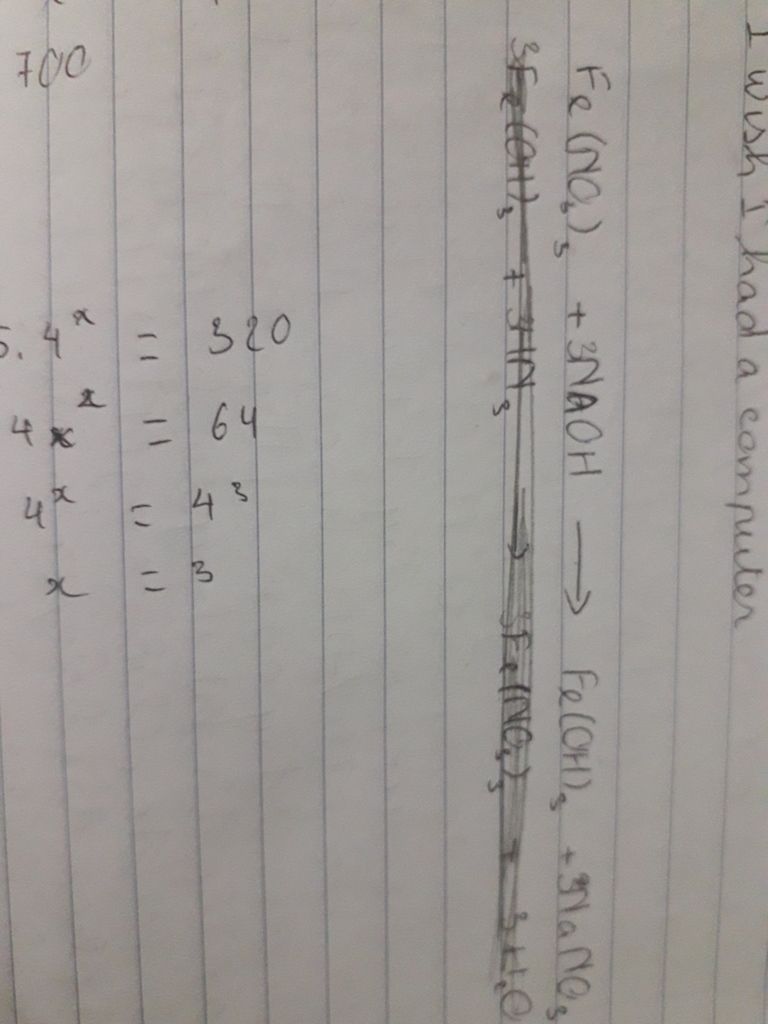 I wish I had a computer
Fe(NO₃)₃ + 3NAOH → Fe(OH)₃ + 3NaNO₃
3Fe(OH)₃ + 3HN₃ → 3Fe(NO₃)₃ + 3H₂O
700
5. 4ˣ = 320
4ˣ = 64
4ˣ = 4³
x = 3